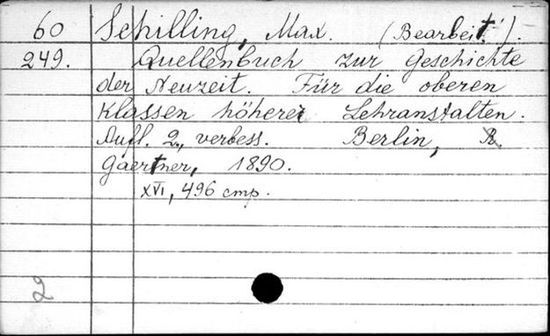 60 Schilling, Max. (Bearbeit.).
249. Quellenbuch zur Geschichte
der Neuzeit. Für die oberen
Klassen höherer Lehranstalten.
Aufl. 2., verbess. Berlin, R.
Gaertner, 1890.
XVI, 496 cmp.
2